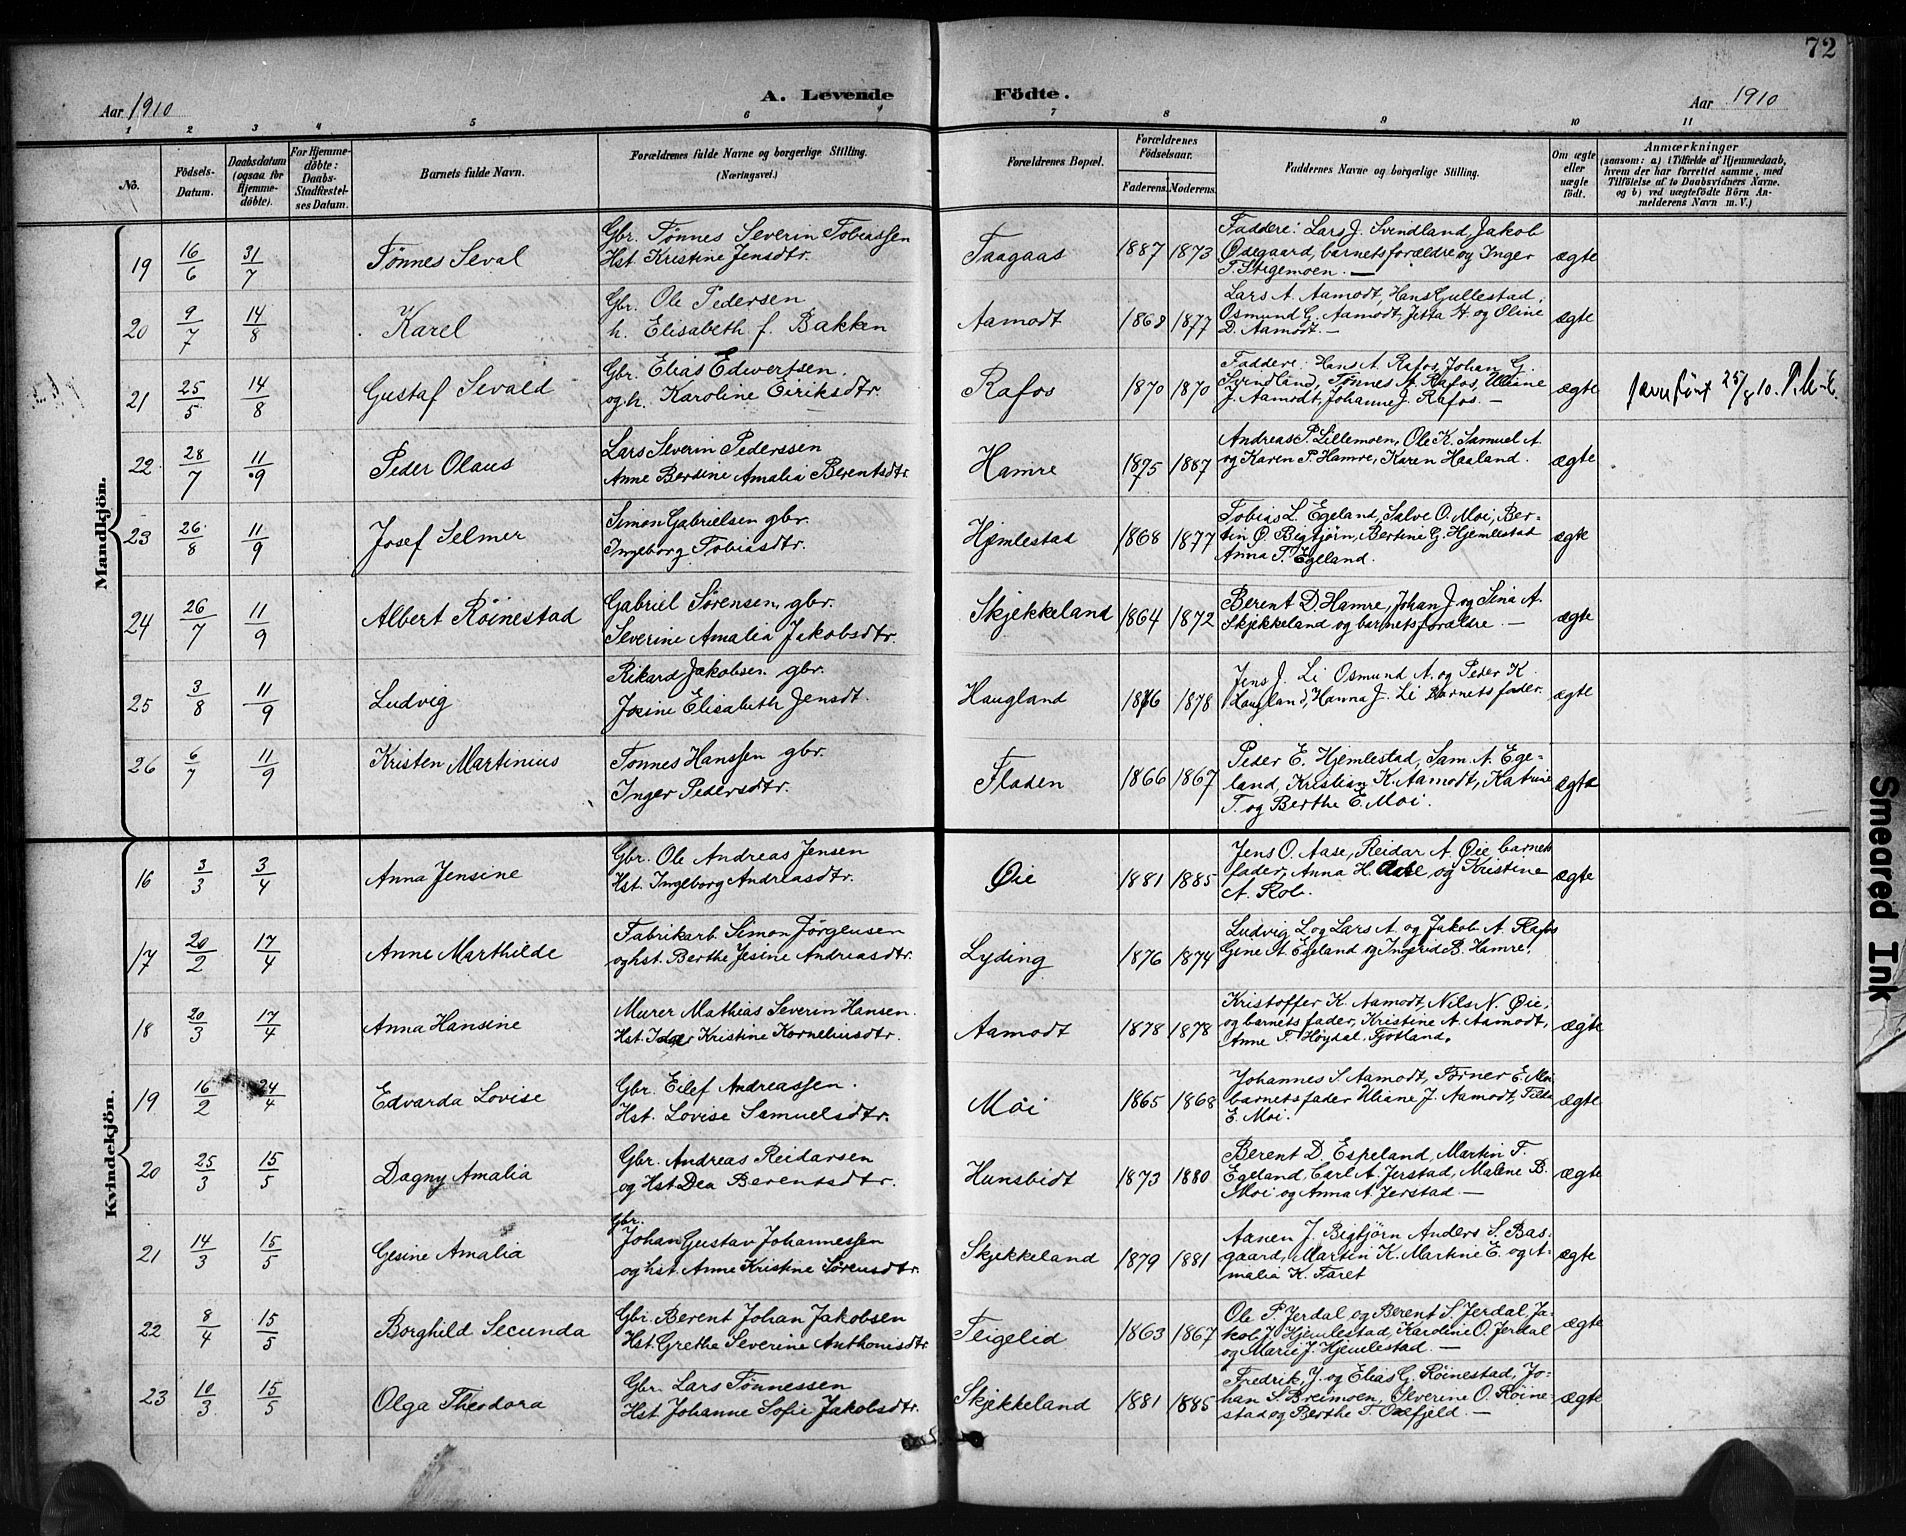 72
A. Levende Födte.
Aar 1910
Aar 1910
1 2 3 4 5 6 7 8 9 10 11
No.
Födsels-Datum.
Daabsdatum (ogsaa for Hjemme-döbte).
For Hjemme-döbte: Daabs-Stadfæstel-ses Datum.
Barnets fulde Navn.
Forældrenes fulde Navne og borgerlige Stilling. (Næringsvei.)
Forældrenes Bopæl.
Forældrenes Födselsaar.
Faderens. Moderens.
Faddernes Navne og borgerlige Stilling.
Om ægte eller uægte födt.
Anmærkninger
(saasom: a) i Tilfælde af Hjemmedaab, hvem der har forrettet samme, med Tilföielse af to Daabsvidners Navne. og b) ved uægtefödte Börn An-melderens Navn m. V.)
Mandkjön.
19 16/6 31/7 Tønnes Seval
Gbr. Tønnes Severin Tobiassen
Hst. Kristine Jensdtr.
Faagaas 1887 1873
Faddere: Lars J. Svindland, Jakob
Ødegaard, barnets forældre og Inger
T. Stigemoen. —
ægte
20 9/7 14/8 Karel
Gbr. Ole Pedersen
h. Elisabeth f. Bakken
Aamodt 1868 1877
Lars A. Aamodt, Hans Gullestad,
Osmund G. Aamodt, Jetta H. og Oline
D. Aamodt. —
ægte
21 25/5 14/8 Gustaf Sevald
Gbr. Elias Edvertsen.
og h. Karoline Eiriksdtr.
Rafos 1870 1870
Faddere: Hans A. Rafos, Johan G.
Svindland, Tønnes A. Rafos, Uliane
J. Aamodt, Johanne J. Rafos. —
ægte
25/8 10.
22 28/7 11/9 Peder Olaus
Lars Severin Pederssen
Anne Berdine Amalia Berentsdtr.
Hamre 1875 1887
Andreas P. Lillemoen, Ole K. Samuel A.
og Karen P. Hamre, Karen Haaland.
ægte
23 26/8 11/9 Josef Selmer
Simon Gabrielsen gbr.
Ingeborg Tobiasdtr.
Hjemlestad 1868 1877
Tobias L. Egeland, Salve O. Moi, Ber-
tin O. Bigtjørn, Bertine G. Hjemlestad
Anna T. Egeland.
ægte
24 26/7 11/9 Albert Røinestad
Gabriel Sørensen, gbr.
Severine Amalia Jakobsdtr.
Skjekkeland 1864 1872
Berent D. Hamre, Johan J og Sina A.
Skjekkeland og barnets forældre. —
ægte
25 3/8 11/9 Ludvig
Rikard Jakobsen gbr.
Josine Elisabeth Jensdt.
Haugland 1876 1878
Jens J. Li Osmund A. og Peder K.
Haugland, Hanna J. Li barnets fader.
ægte
26 6/7 11/9 Kristen Martinius
Tønnes Hanssen gbr.
Inger Pedersdtr.
Fladen 1866 1867
Peder E. Hjemlestad, Sam. A. Ege-
land, Kristian K. Aamodt, Katrine
T. og Berthe E. Moi.
ægte
Kvindekjön.
16 3/3 3/4 Anna Jensine
Gbr. Ole Andreas Jensen
Hst. Ingeborg Andreasdtr.
Øie 1881 1885
Jens O. Aase, Reidar A. Øie barnets
fader, Anna H. Aase, og Kristine
A. Rob.
ægte
17 20/2 17/4 Anne Marthilde
Fabrikarb. Simon Jörgensen
og hst. Berthe Jesine Andreasdtr.
Lyding 1876 1874
Ludvig L. og Lars A. og Jakob A. Rafos
Gine A. Egeland og Ingrid B. Hamre.
18 20/3 17/4 Anna Hansine
Murer Mathias Severin Hansen.
Hst. Kristine Korneliusdtr.
Aamodt 1878 1878
Kristoffer K. Aamodt, Nils N. Øie,
og barnets fader, Kristine A. Aamodt,
Anne T. Høydal, Fjotland.
ægte
19 16/2 24/4 Edvarda Lovise
Gbr. Eilef Andreassen.
Hst. Lovise Samuelsdtr.
Moi 1865 1868
Johannes S. Aamodt, Tørner E. Moi
barnets fader Uliane J. Aamodt, Tilda
E. Moi.
ægte
20 25/3 15/5 Dagny Amalia
Gbr. Andreas Reidarsen
og Hst Dea Berentsdtr.
Hunsbidt 1873 1880
Berent D. Espeland, Martin T.
Egeland, Carl A. Jerstad, Malene B.
Moi og Anna A. Jerstad —
ægte
21 14/3 15/5 Gesine Amalia
Gbr.
Johan Gustav Johannessen
og hst. Anne Kristine Sørensdtr.
Skjekkeland 1879 1881
Aanen J. Bigtjørn Anders S. Bas-
gaard, Martin K. Martine E. og A-
malia K. Faret
ægte
22 8/4 15/5 Borghild Secunda
Gbr. Berent Johan Jakobsen
Hst. Grethe Severine Anthonisdtr
Teigelid 1863 1867
Ole P. Jerdal og Berent S. Jerdal, Ja-
kob J. Hjemlestad, Karoline O. Jerdal
og Marie J. Hjemlestad. —
ægte
23 10/3 15/5 Olga Theodora
Gbr. Lars Tønnessen
Hst. Johanne Sofie Jakobsdtr.
Skjekkeland 1881 1885
Fredrik J. og Elias G. Röinestad, Jo-
han S. Breimoen, Severine O. Röine-
stad og Berthe T. Oxefjeld. —
ægte
Smeared Ink